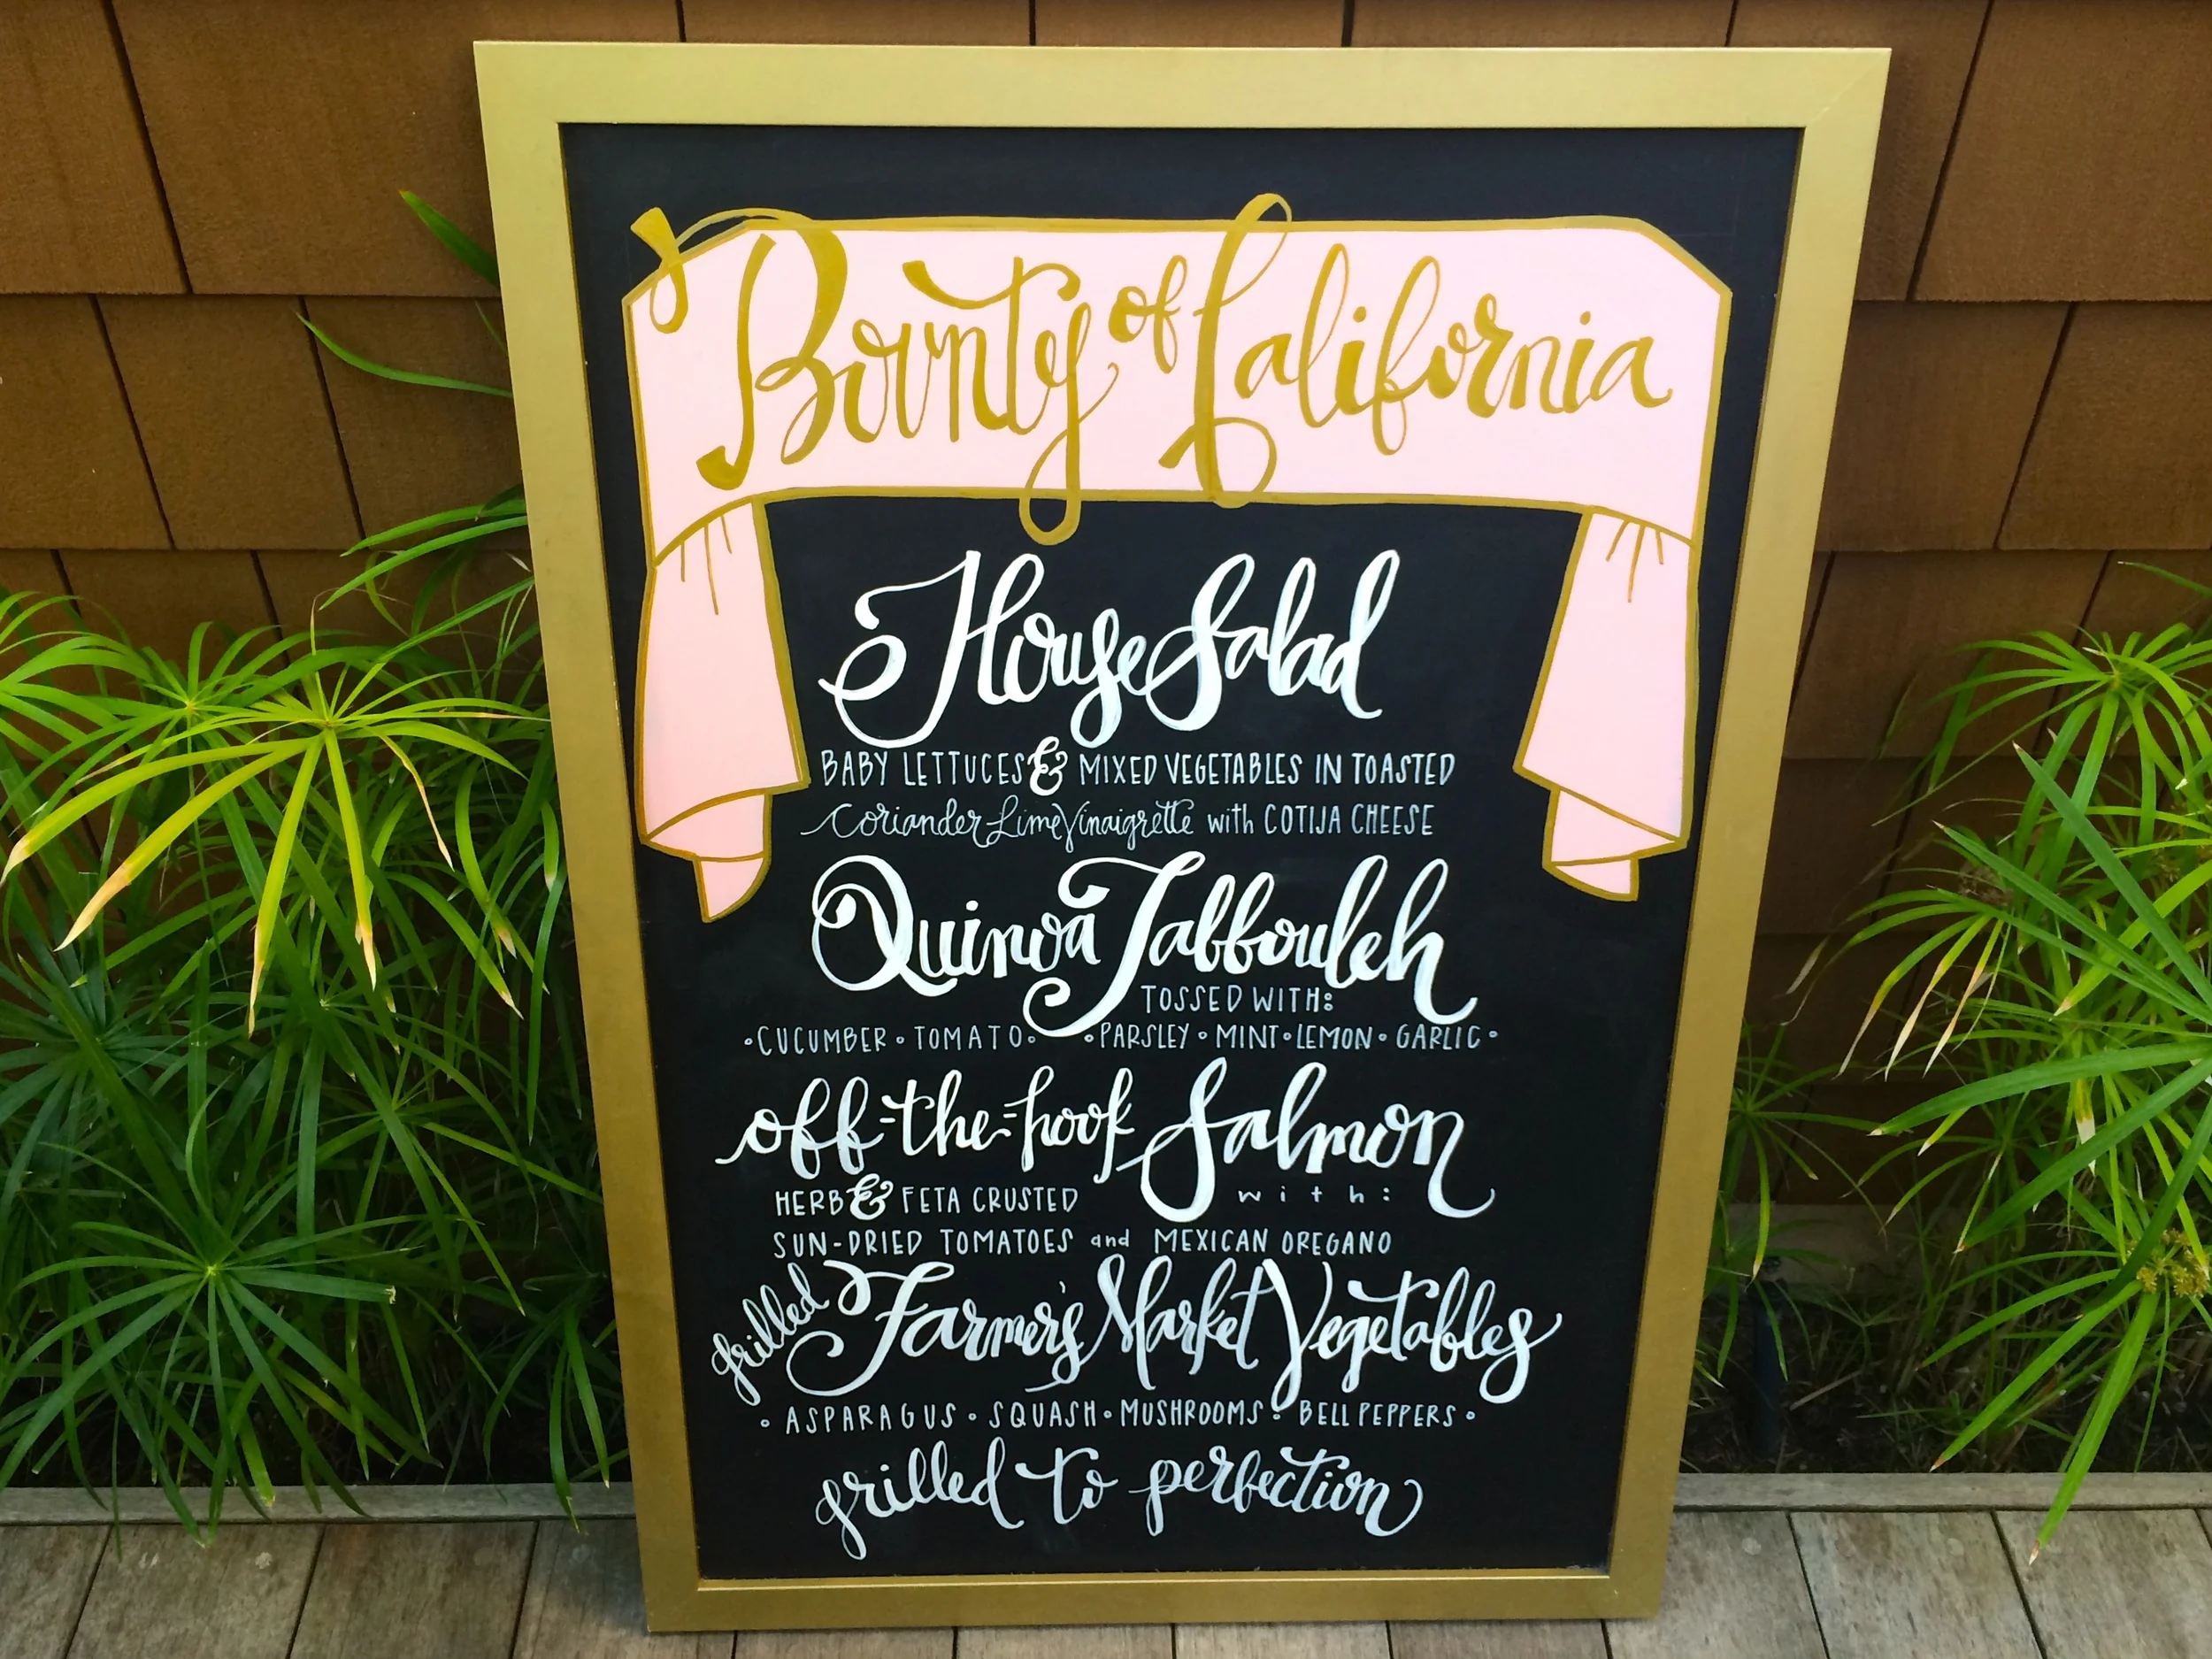 Bounty of California
House Salad
BABY LETTUCES & MIXED VEGETABLES IN TOASTED
Coriander Lime Vinaigrette with COTIJA CHEESE
Quinoa Tabbouleh
TOSSED WITH:
•CUCUMBER•TOMATO• •PARSLEY•MINT•LEMON•GARLIC•
off-the-hook Salmon
HERB & FETA CRUSTED with:
SUN-DRIED TOMATOES and MEXICAN OREGANO
grilled Farmer's Market Vegetables
•ASPARAGUS•SQUASH•MUSHROOMS•BELL PEPPERS•
grilled to perfection